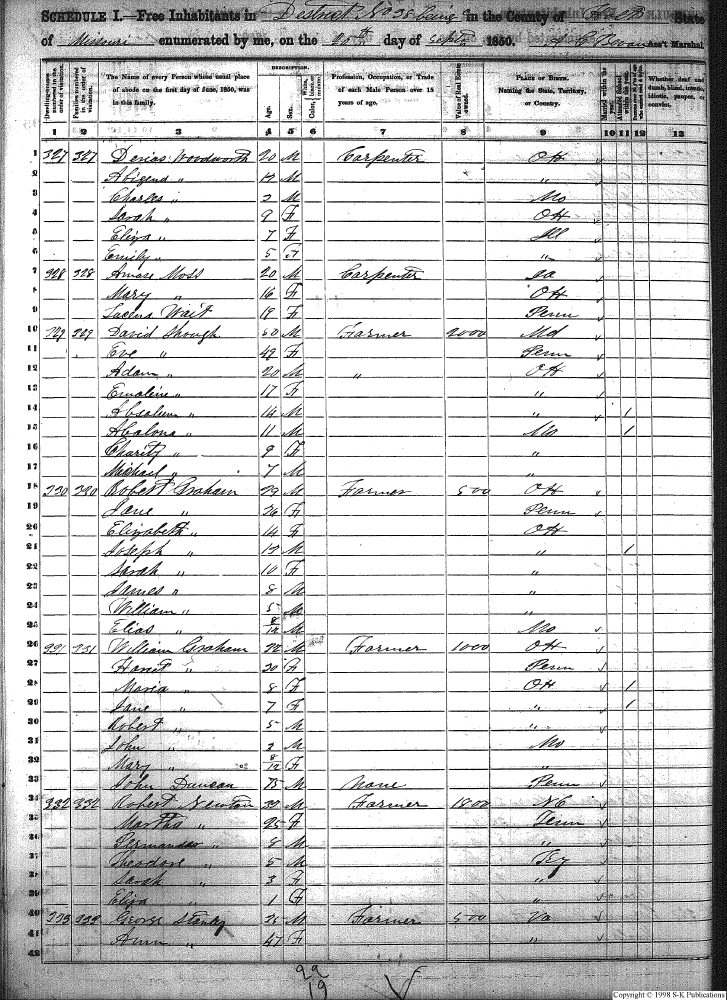 SCHEDULE I.—Free Inhabitants in District No 38 being in the County of State
of Missouri enumerated by me, on the 20th day of Septr 1850. Ass't Marshal
DESCRIPTION.
The Name of every Person whose usual place of abode on the first day of June, 1850, was in this family.
Age. Sex.
Profession, Occupation, or Trade of each Male Person over 15 years of age.
Value of Real Estate owned.
PLACE OF BIRTH. Naming the State, Territory, or Country.
Whether deaf and dumb, blind, insane, idiotic, pauper, or convict.
1 2 3 4 5 6 7 8 9 10 11 12 13
1 327 327 Woodworth 20 M Carpenter OH
2 " M "
3 Charles " 2 M Mo
4 Sarah " 9 F OH
5 Eliza " 7 F Ill
6 Emily " 5 F "
7 328 328 Moss 20 M Carpenter
8 Mary " 16 F OH
9 Wait 19 F Penn
10 329 329 David Shough 50 M Farmer 2000 Md
11 Eve " 49 F Penn
12 Adam " 20 M " OH
13 Emaline " 17 F "
14 Absalem " 14 M " 1
15 Abalona " 11 M Mo 1
16 Charity " 9 F "
17 Michail " 7 M "
18 330 330 Robert Graham 39 M Farmer 500 OH
19 Jane " 36 F Penn
20 Elizabeth " 14 F OH
21 Joseph " M " 1
22 Sarah " 10 F "
23 James " 8 M "
24 William " 5 M "
25 Elias " 8/12 M Mo
26 331 331 William Graham 32 M Farmer 1000 OH
27 " 30 F Penn
28 Maria " 8 F OH 1
29 Jane " 7 F " 1
30 Robert " 5 M "
31 John " 3 M Mo
32 Mary " 8/12 F "
33 John Duncan 75 M None Penn
34 332 332 Robert Newton M Farmer 1800 NC
35 Martha " 25 F Tenn
36 " 8 M "
37 Theodore " 5 M Ky
38 Sarah " 3 F "
39 Eliza " 1 F "
40 333 333 George Stanly M Farmer 500 Va
41 Ann " 47 F "
42
Copyright © 1998 S-K Publications